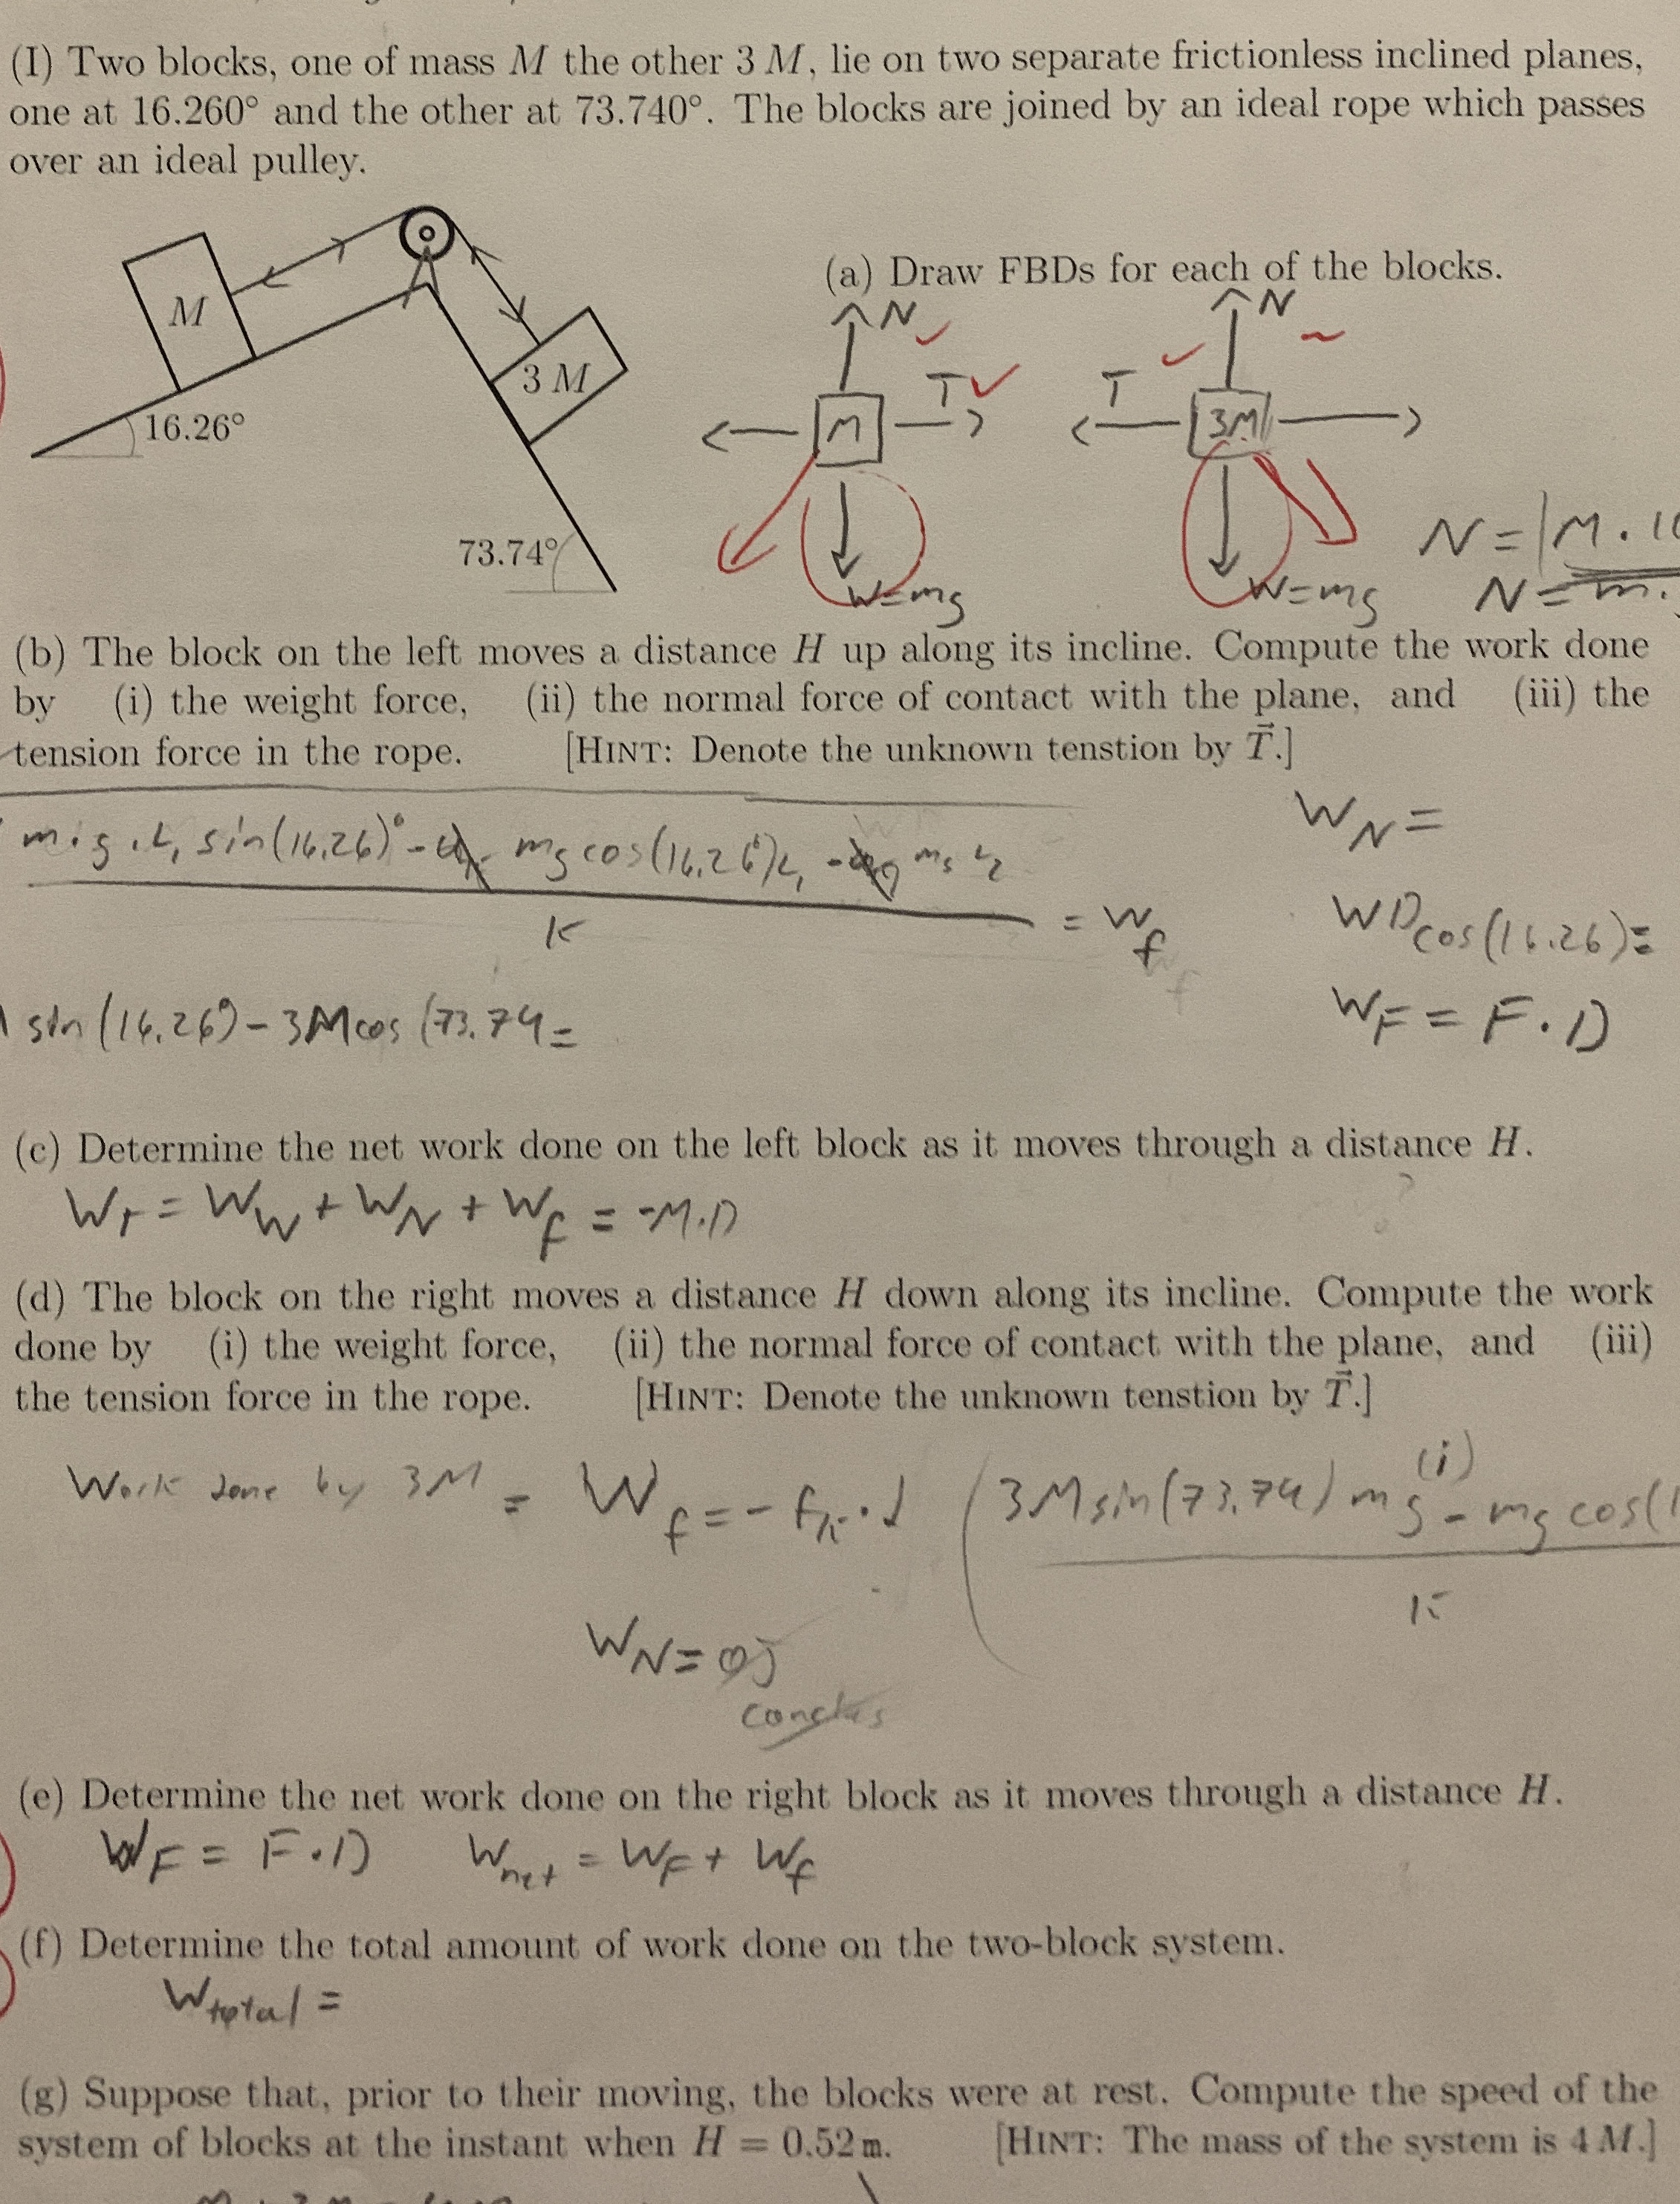 (I) Two blocks, one of mass M the other 3 M, lie on two separate frictionless inclined planes,
one at 16.260° and the other at 73.740°. The blocks are joined by an ideal rope which passes
over an ideal pulley.
M
3 M
16.26°
73.74°
(a) Draw FBDs for each of the blocks.
N
N
T
T
M
3M
W=mg
W=mg
N =
N =
(b) The block on the left moves a distance H up along its incline. Compute the work done
by (i) the weight force, (ii) the normal force of contact with the plane, and (iii) the
tension force in the rope. [HINT: Denote the unknown tenstion by T⃗.]
m·g·L₁ sin(16.26)° - mg cos(16.26°)L₁ - mg L₂
K
= W_f
W_N =
WD cos(16.26) =
W_F = F·D
sin(16.26°) - 3M cos(73.74 =
(c) Determine the net work done on the left block as it moves through a distance H.
W_T = W_W + W_N + W_f = -M·D
?
(d) The block on the right moves a distance H down along its incline. Compute the work
done by (i) the weight force, (ii) the normal force of contact with the plane, and (iii)
the tension force in the rope. [HINT: Denote the unknown tenstion by T⃗.]
(i)
Work done by 3M = W_f = - f_k·d (3M sin(73.74) mg - mg cos(1
K
W_N = 0J
(e) Determine the net work done on the right block as it moves through a distance H.
W_F = F·D W_net = W_F + W_f
(f) Determine the total amount of work done on the two-block system.
W_total =
(g) Suppose that, prior to their moving, the blocks were at rest. Compute the speed of the
system of blocks at the instant when H = 0.52 m. [HINT: The mass of the system is 4 M.]